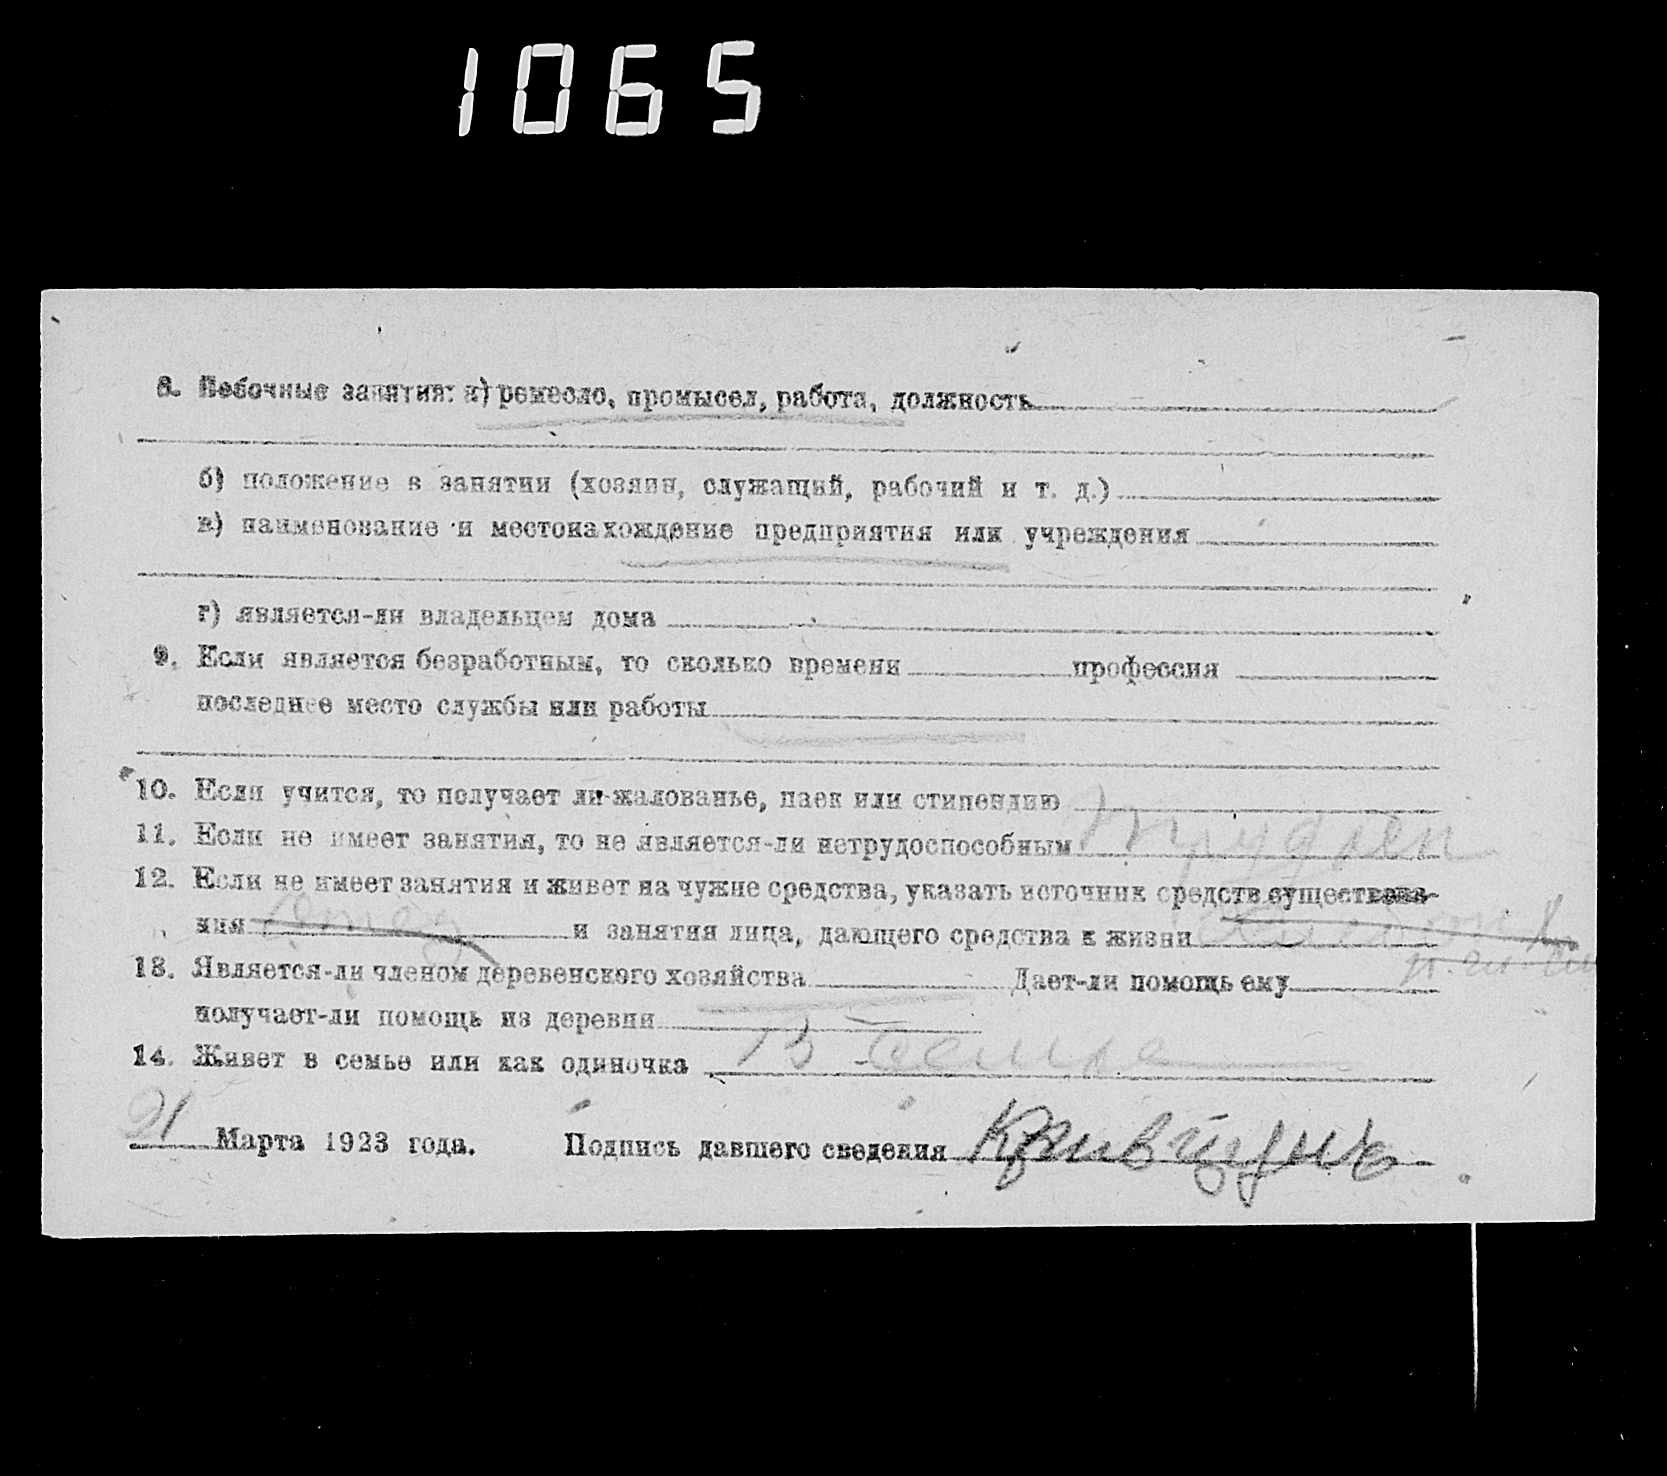 1065
8. Побочные занятия: а) ремесло, промысел, работа, должность
б) положение в занятии (хозяин, служащий, рабочий и т. д.)
в) наименование и местонахождение предприятия или учреждения
г) является-ли владельцем дома
9. Если является безработным, то сколько времени профессия
последнее место службы или работы
10. Если учится, то получает ли жалованье, паек или стипендию
11. Если не имеет занятия, то не является-ли нетрудоспособным
12. Если не имеет занятия и живет на чужие средства, указать источник средств существова-
ния отец и занятия лица, дающего средства к жизни
13. Является-ли членом деревенского хозяйства Дает-ли помощь ему
получает-ли помощь из деревни
14. Живет в семье или как одиночка В семье
21 Марта 1923 года. Подпись давшего сведения